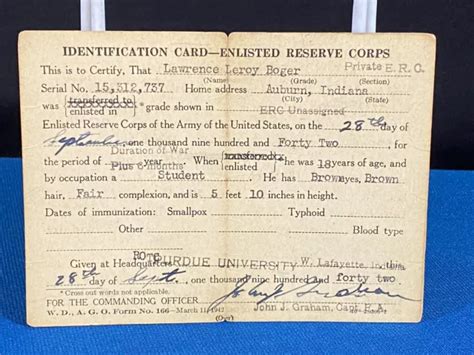 IDENTIFICATION CARD—ENLISTED RESERVE CORPS
This is to Certify, That Lawrence Leroy Boger Private E.R.C.
(Name) (Grade) (Section)
Serial No. 15,312,757 Home address Auburn, Indiana
was transferred to * grade shown in ERC Unassigned
enlisted in
Enlisted Reserve Corps of the Army of the United States, on the 28th day of
September one thousand nine hundred and Forty Two for
Duration of War
the period of Plus 6 months year. When transferred he was 18 years of age, and
enlisted
by occupation a Student He has Brown eyes, Brown
hair, Fair complexion, and is 5 feet 10 inches in height.
Dates of immunization: Smallpox Typhoid
Other Blood type
ROTC
Given at Headquarters PURDUE UNIVERSITY W. Lafayette, Indiana
28th day of Sept. one thousand nine hundred and forty two
* Cross out words not applicable.
FOR THE COMMANDING OFFICER
W. D., A. G. O. Form No. 166—March 11, 1942
John J. Graham, Capt. F.A.
(Over)